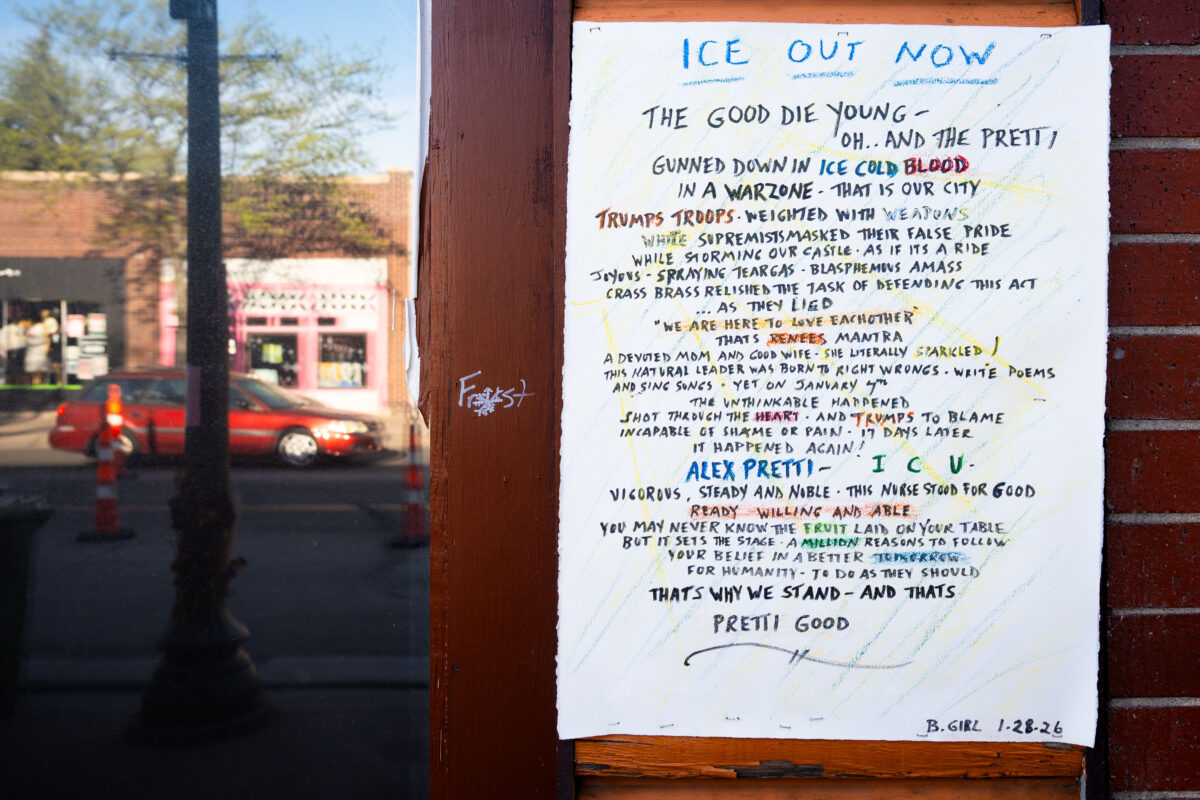 ICE OUT NOW
THE GOOD DIE YOUNG -
OH.. AND THE PRETTI
GUNNED DOWN IN ICE COLD BLOOD
IN A WARZONE - THAT IS OUR CITY
TRUMPS TROOPS - WEIGHTED WITH WEAPONS
WHITE SUPREMISTS MASKED THEIR FALSE PRIDE
WHILE STORMING OUR CASTLE - AS IF ITS A RIDE
JOYOUS - SPRAYING TEARGAS - BLASPHEMOUS AMASS
CRASS BRASS RELISHED THE TASK OF DEFENDING THIS ACT
... AS THEY LIED
"WE ARE HERE TO LOVE EACHOTHER"
THATS RENEES MANTRA
A DEVOTED MOM AND GOOD WIFE - SHE LITERALLY SPARKLED!
THIS NATURAL LEADER WAS BORN TO RIGHT WRONGS - WRITE POEMS
AND SING SONGS - YET ON JANUARY 7TH
THE UNTHINKABLE HAPPENED
SHOT THROUGH THE HEART - AND TRUMPS TO BLAME
INCAPABLE OF SHAME OR PAIN - 17 DAYS LATER
IT HAPPENED AGAIN!
ALEX PRETTI - I C U -
VIGOROUS, STEADY AND NOBLE - THIS NURSE STOOD FOR GOOD
READY WILLING AND ABLE
YOU MAY NEVER KNOW THE FRUIT LAID ON YOUR TABLE
BUT IT SETS THE STAGE - A MILLION REASONS TO FOLLOW
YOUR BELIEF IN A BETTER TOMORROW
FOR HUMANITY - TO DO AS THEY SHOULD
THAT'S WHY WE STAND - AND THATS
PRETTI GOOD
B. GIRL 1-28-26
Frost